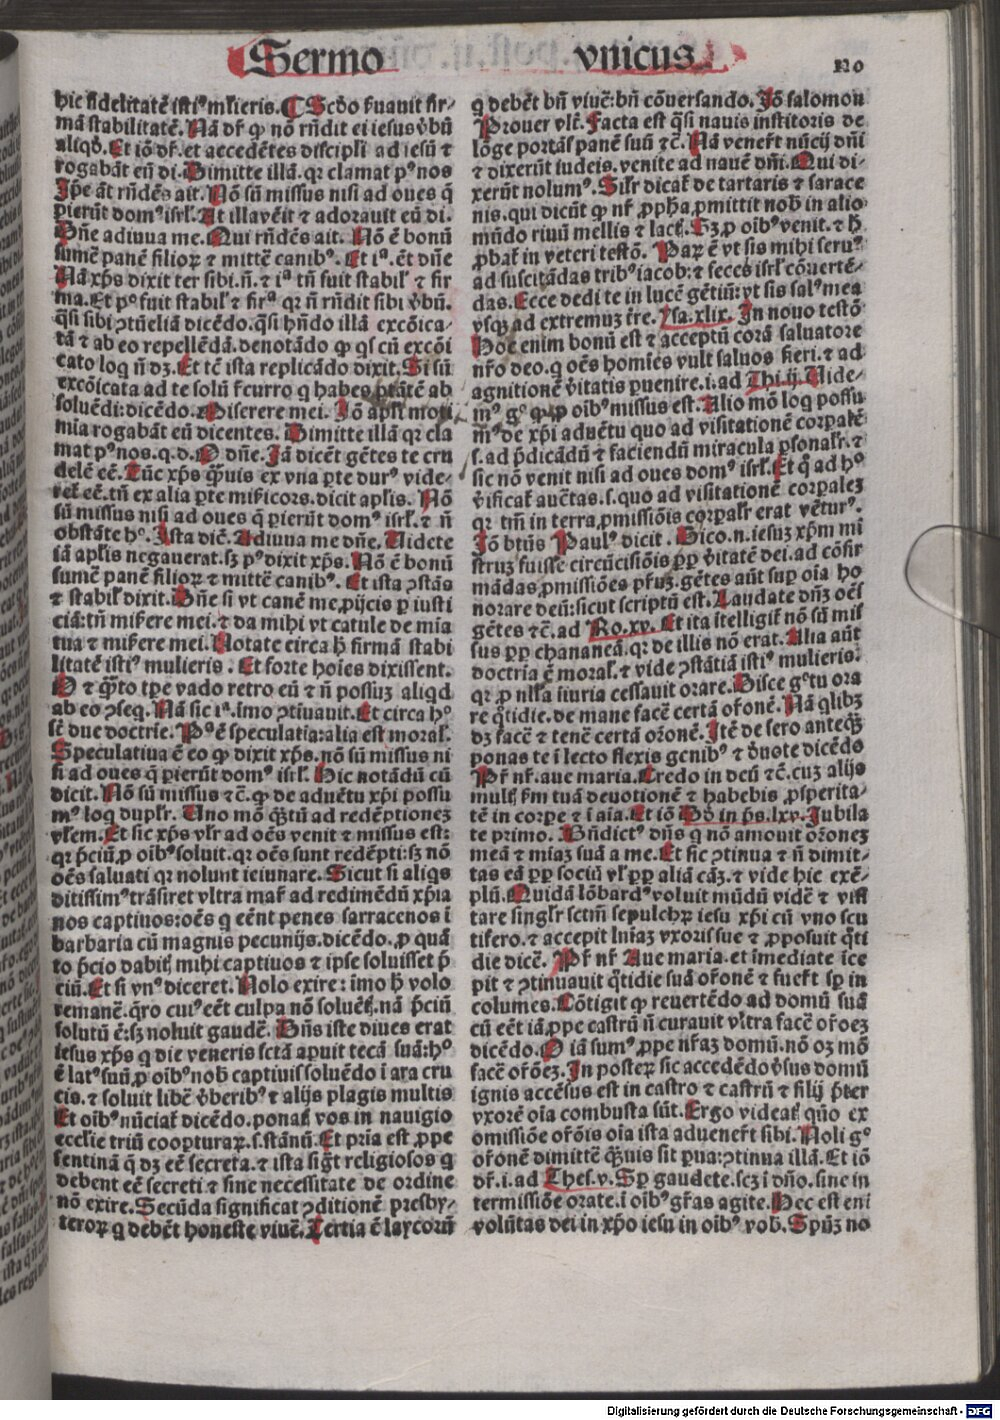 Sermo vnicus 120
hic fidelitatē istiꝰ mĺieris. ¶ Scd̄o ẜuauit fir/
mā stabilitatē. Nā dr̄ ꝙ nō rn̄dit ei iesus v̓bū
aliqd̓. Et iō dr̄. et accedētes discipĺi ad iesū ⁊
rogabāt eū di. Dimitte illā. qꝛ clamat pꝰ nos
Ipe āt rn̄dēs ait. Nō sū missus nisi ad oues q̄
pierūt domꝰ isrĺ. At illa vēit ⁊ adorauit eū di.
Dn̄e adiuua me. Qui rn̄dēs ait. Nō ē bonū
sumē panē filioꝝ ⁊ mittē canibꝰ. Et iᵃ. ēt dn̄e
Nā xp̄s dixit ter sibi. ñ. ⁊ iᵃ tñ fuit stabiĺ ⁊ fir
ma. Et pº fuit stabiĺ ⁊ firᵃ qꝛ ñ rn̄dit sibi v̓bū.
q̄si sibi ↄtūeliā dicēdo. q̄si hn̄do illā excōica/
tā ⁊ ab eo repellēdā. denotādo ꝙ qs cū excōi
cato loq ñ dꝫ. Et tē ista replicādo dixit. Si sū
excōicata ad te solū ẜcurro q habes ptātē ab
soluēdi: dicēdo. Miserere mei. Iō apĺi moti
mia rogabāt eū dicentes. Dimitte illā qꝛ cla
mat pꝰ nos. q. d. O dn̄e. Iā dicēt gētes te cru
delē eē. Tūc xp̄s q̄uis ex vna pte durꝰ vide/
ret̄ eē. tñ ex alia pte miẜicors. dicit apĺis. Nō
sū missus nisi ad oues q̄ pierūt domꝰ isrĺ. ⁊ ñ
obstāte hº. Ista dic̄. Adiuua me dn̄e. Uidete
iā apĺis negauerat. sꝫ pꝰ dixit xp̄s. Nō ē bonū
sumē panē filioꝝ ⁊ mittē canibꝰ. Et ista ↄstās
⁊ stabiĺ dixit. Dn̄e si vt canē me, pijcis p iusti
ciā: tñ miẜere mei. ⁊ da mihi vt catule de mīa
tua ⁊ miẜere mei. Notate circa h̄ firmā stabi
litatē istiꝰ mulieris. Et forte hoīes dixissent.
O ⁊ q̄to tpe vado retro eū ⁊ ñ possuꝫ aliqd
ab eo ↄseq. Nā sic iᵃ. imo ↄtinauit. Et circa hº
sē due doctrīe. Pᵃ ē speculatia: alia est moraĺ.
Speculatiua ē eo ꝙ dixit xp̄s. nō sū missus ni
si ad oues q̄ pierūt domꝰ isrĺ. Hic notādū cū
dicit. Nō sū missus ⁊c̄. ꝙ de aduētu xp̄i possu
mꝰ loq dupĺr. Uno mō q̄tū ad redēptionēꝫ
vĺem. Et sic xp̄s vĺr ad oēs venit ⁊ missus est:
qꝛ p̄ciū, p oībꝰ soluit. qꝛ oēs sunt redēpti: sꝫ nō
oēs saluati qꝛ nolunt ieiunare. Sicut si aliqs
ditissimꝰ trāsiret vltra mar̄ ad redimēdū xp̄ia
nos captiuos: oēs q eēnt penes sarracenos ī
barbaria cū magnis pecunijs. dicēdo. p quā
to p̄cio dabit̄ mihi captiuos ⁊ ipse soluisset p̄
ciū. Et si vnꝰ diceret. Nolo exire: imo h̄ volo
remanē. qro cuiꝰ eēt culpa nō soluēt̄. nā p̄ciū
solutū ē: sꝫ noluit gaudē. Dn̄s iste diues erat
iesus xp̄s q die veneris sctā apuit tecā suā: hº
ē latꝰ suū, p oībꝰ nob̄ captiuis soluēdo ī ara cru
cis. ⁊ soluit libē v̓beribꝰ ⁊ alijs plagis multis
Et oībꝰ nūciat̄ dicēdo. ponat̄ vos in nauigio
ecclie triū coopturaꝝ. s. stānū. Et pria est, ppe
sentinā q̄ dꝫ eē secreta. ⁊ ista sigt̄ religiosos q
debent eē secreti ⁊ sine necessitate de ordine
nō exire. Secūda significat ↄditionē presby/
teroꝝ q debēt honeste viuē. Tertia ē laycorū
q debēt bn̄ viuē: bn̄ cōuersando. Iō salomon
Prouer vĺt. Facta est q̄si nauis institoris de
lōge portās panē suū ⁊c̄. Nā venerūt nūcij dn̄i
⁊ dixerūt iudeis. venite ad nauē dn̄i. Qui di/
xerūt nolumꝰ. Siĺr dicat̄ de tartaris ⁊ sarace
nis. qui dicūt ꝙ nr̄, ppha, pmittit nob̄ in alio
mūdo riuū mellis ⁊ lact̄. Sꝫ, p oībꝰ venit. ⁊ h̄
, pbat̄ in veteri testō. Parꝝ ē vt sis mihi seruꝰ
ad suscitādas tribꝰ iacob: ⁊ feces isrĺ cōuertē/
das. Ecce dedi te in lucē gētiū: vt sis salꝰ mea
vsqꝫ ad extremuꝫ tr̄e. Ysa. xlix. In nouo testō
Hoc enim bonū est ⁊ acceptū corā saluatore
nr̄o deo. q oēs homīes vult saluos fieri. ⁊ ad
agnitionē v̓itatis puenire. i. ad Thi. ij. Uide/
mꝰ gº ꝙ, p oībꝰ missus est. Alio mō loq possu
mꝰ de xp̄i aduētu quo ad visitationē corpalē
s. ad p̄dicādū ⁊ faciendū miracula psonaĺr. ⁊
sic nō venit nisi ad oues domꝰ isrĺ. Et q̄ ad hº
v̓ificat̄ auc̄tas. s. quo ad visitationē corpalez
qꝛ tm̄ in terra, pmissiōis corpaĺr erat vēturꝰ.
Iō bt̄us Paulꝰ dicit. Dico. n. iesuꝫ xp̄m mi
struꝫ fuisse circūcisiōis pp v̓itatē dei. ad cōfir
mādas, pmissiōes pr̄uꝫ. gētes aūt sup oīa ho
norare deū: sicut scriptū est. Laudate dn̄ꝫ oēs
gētes ⁊c̄. ad Ro. xv. Et ita ītelligit̄ nō sū mis
sus pp chananeā. qꝛ de illis nō erat. Alia aūt
doctrīa ē moraĺ. ⁊ vide ↄstātiā istiꝰ mulieris.
qꝛ, p nĺla iiuria cessauit orare. Disce gº tu ora
re q̄tidie. de mane facē certā or̄onē. Nā qĺibꝫ
dꝫ facē ⁊ tenē certā or̄onē. Itē de sero anteq̄ꝫ
ponas te ī lecto flexis genibꝰ ⁊ d̓uote dicēdo
Pr̄ nr̄. aue maria. Credo in deū ⁊c̄. cuꝫ alijs
mult̄ ẜm tuā deuotionē ⁊ habebis, psperita/
tē in corpe ⁊ ī aīa. Et iō Dd̓ in ps. lxv. Iubila
te primo. Bn̄dictꝰ dn̄s q nō amouit or̄oneꝫ
meā ⁊ miaꝫ suā a me. Et sic ↄtinua ⁊ ñ dimit/
tas eā pp sociū vĺ pp aliā cāꝫ. ⁊ vide hic exē/
plū. Quidā lōbardꝰ voluit mūdū vidē ⁊ visi
tare singĺr sctm̄ sepulchꝝ iesu xp̄i cū vno scu
tifero. ⁊ accepit lnīaꝫ vxoris sue ⁊, pposuit q̄ti
die dicē. Pr̄ nr̄ Aue maria. et īmediate īce
pit ⁊ ↄtinuauit q̄tidie suā or̄onē ⁊ fuer̄t sp in
columes. Cōtigit ꝙ reuertēdo ad domū suā
cū eēt iā, ppe castrū ñ curauit vltra facē or̄oeꝫ
dicēdo. O iā sumꝰ, ppe nr̄aꝫ domū. nō oꝫ mō
facē or̄oēꝫ. In posteꝝ sic accedēdo v̓sus domū
ignis accēsus est in castro ⁊ castrū ⁊ filij p̄ter
vxorē oīa combusta sūt. Ergo videat̄ qūo ex
omissiōe or̄ōis oīa ista aduener̄t sibi. Noli gº
or̄onē dimittē q̄uis sit pua: ↄtinua illā. Et iō
dr̄. i. ad Thes. v. Sp gaudete. scꝫ ī dn̄o. sine in
termissiōe orate. ī oībꝰ gr̄as agite. Hec est eni
volūtas dei in xp̄o iesu in oībꝰ vob̄. Spūꝫ no
Digitalisierung gefördert durch die Deutsche Forschungsgemeinschaft - DFG